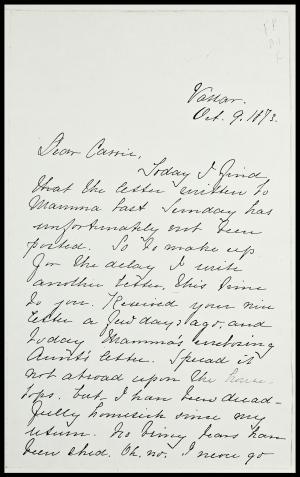 Vassar.
Oct. 9. 1873.
Dear Carrie,
Today I find
that the letter written to
Mamma last Sunday has
unfortunately not been
posted. So to make up
for the delay I write
another letter, this time
to you. Received your nice
letter a few days ago, and
today Mamma's enclosing
Aunt's letter. Spread it
not abroad upon the house-
tops. but I have been dread-
fully homesick since my
return. No briny tears have
been shed. Oh, no. I never go